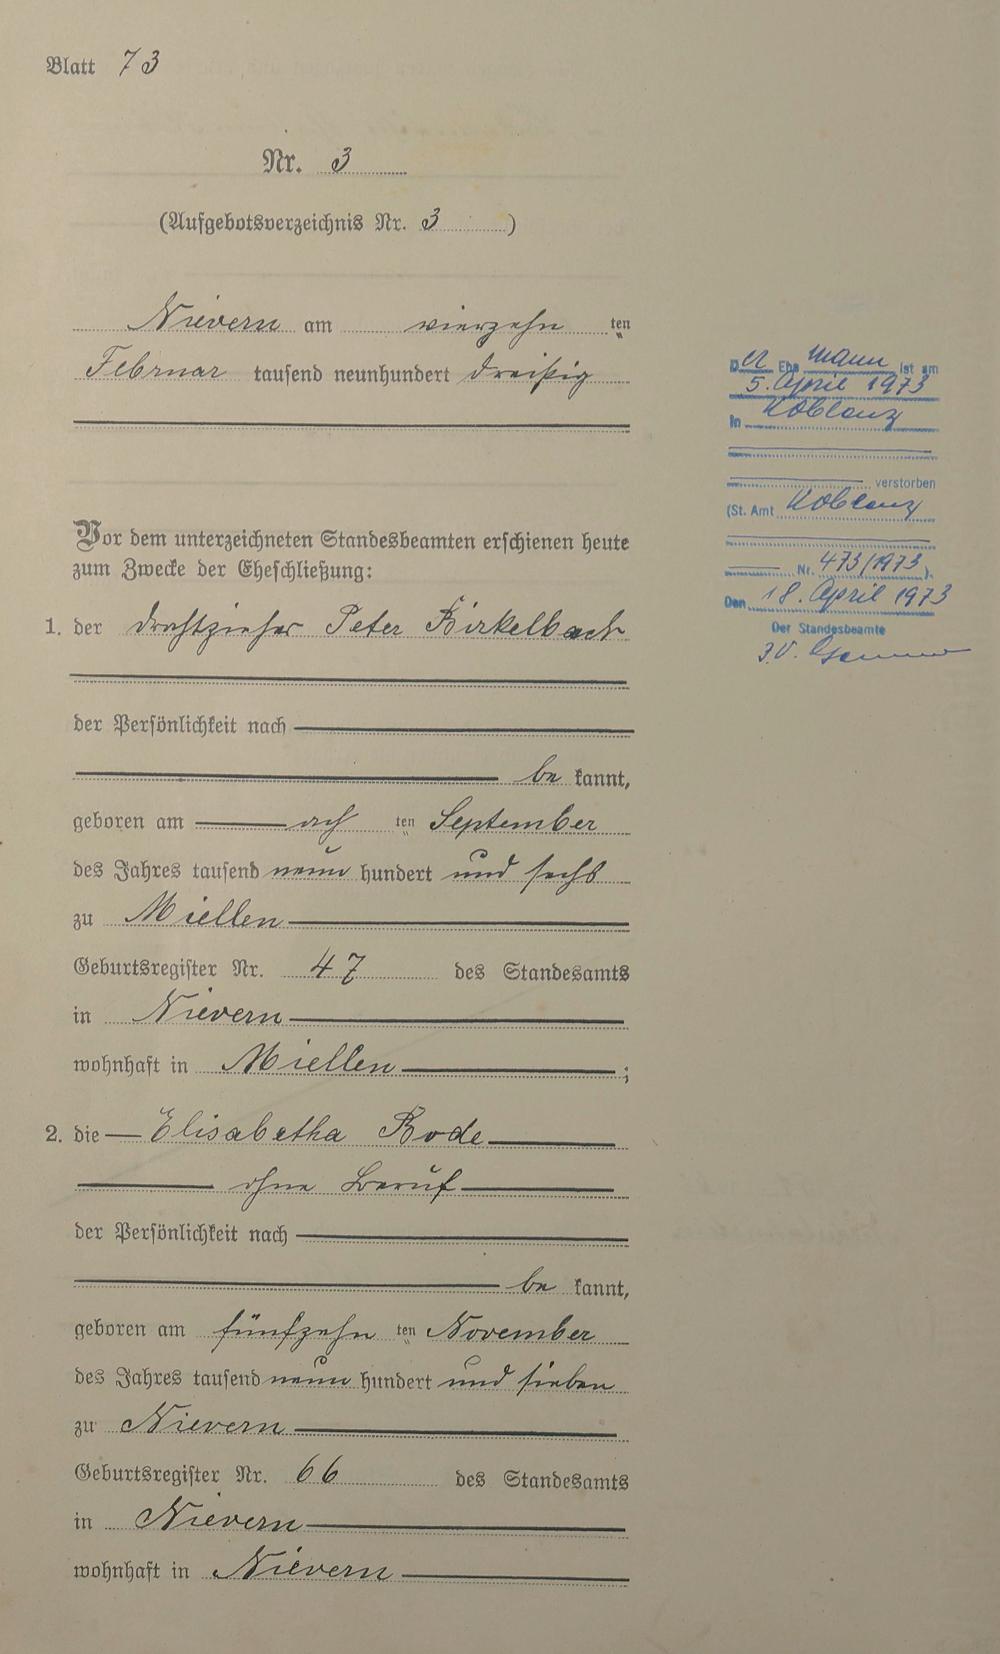 Blatt 73
Nr. 3
(Aufgebotsverzeichnis Nr. 3)
Nievern am vierzehn ten
Februar tausend neunhundert dreißig
Vor dem unterzeichneten Standesbeamten erschienen heute
zum Zwecke der Eheschließung:
1. der Drahtzieher Peter Birkelbach
der Persönlichkeit nach
be kannt,
geboren am ach ten September
des Jahres tausend neun hundert und sechs
zu Miellen
Geburtsregister Nr. 47 des Standesamts
in Nievern
wohnhaft in Miellen ;
2. die Elisabetha Bode
ohne Beruf
der Persönlichkeit nach
be kannt,
geboren am fünfzehn ten November
des Jahres tausend neun hundert und sieben
zu Nievern
Geburtsregister Nr. 66 des Standesamts
in Nievern
wohnhaft in Nievern
Der Ehe mann ist am
5. April 1973
in Koblenz
verstorben
(St. Amt Koblenz
Nr. 473/1973).
Den 18. April 1973
Der Standesbeamte
J.V.